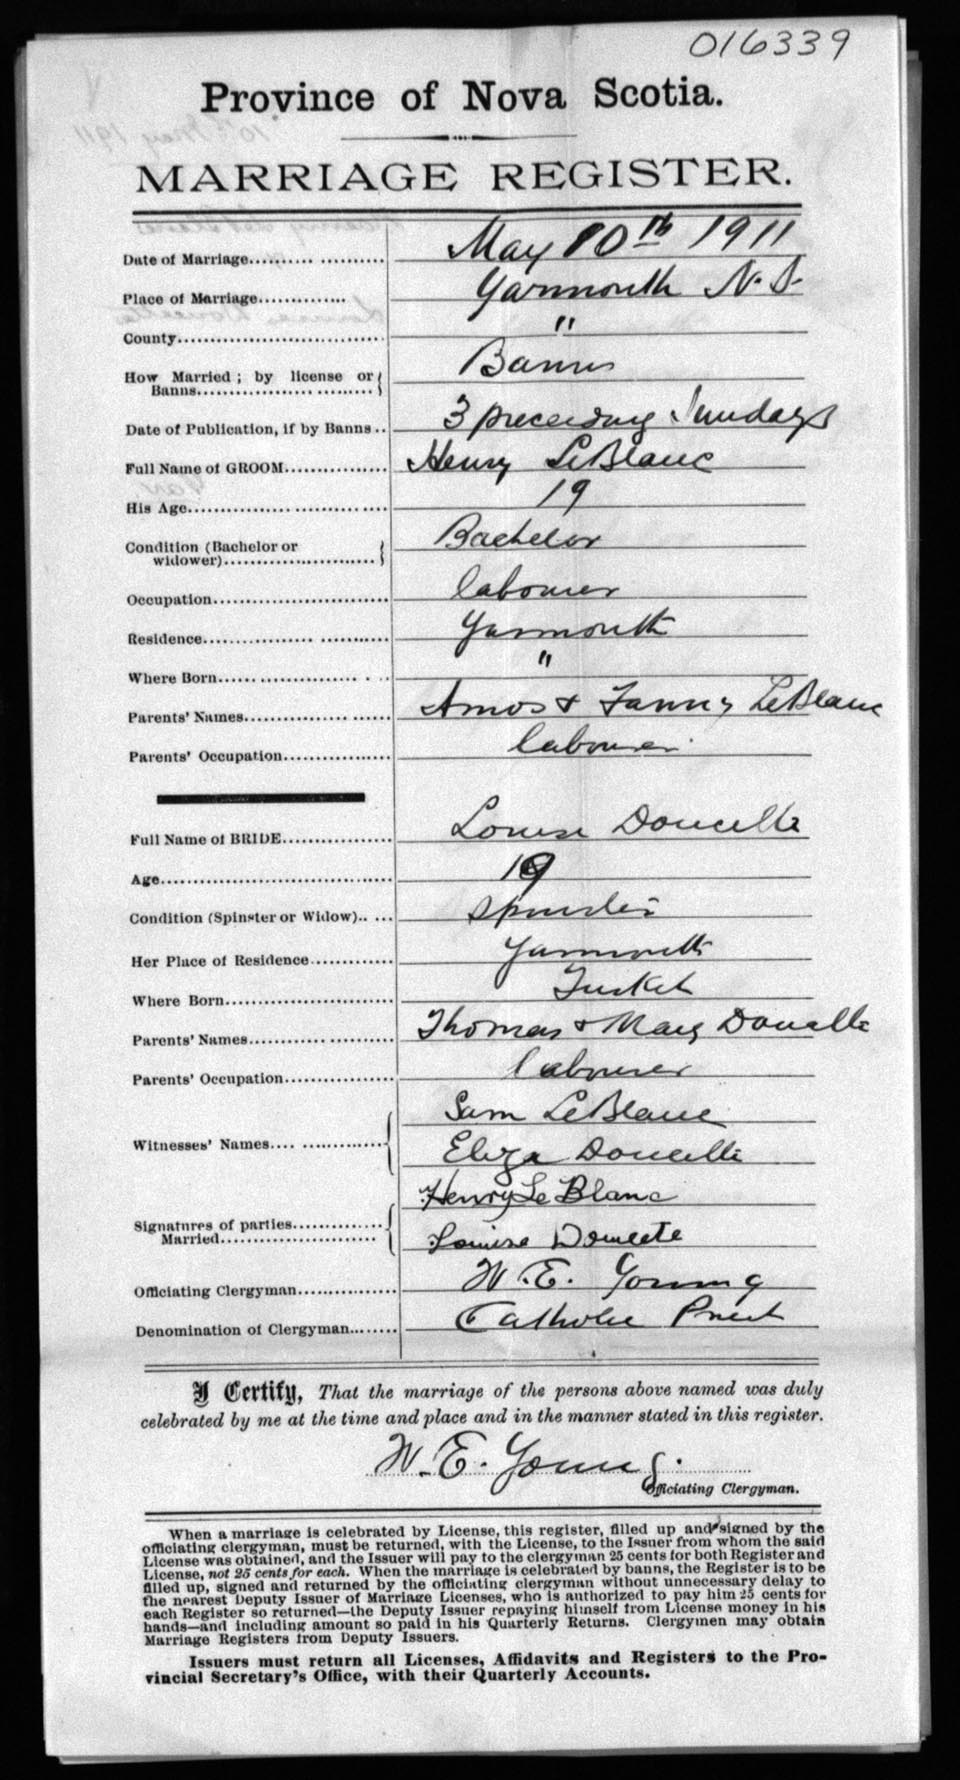 016339
Province of Nova Scotia.
MARRIAGE REGISTER.
Date of Marriage.................. May 10th 1911
Place of Marriage.............. Yarmouth N.S.
County................................ "
How Married; by license or Banns........................ Banns
Date of Publication, if by Banns.. 3 preceding Sundays
Full Name of GROOM................ Henry LeBlanc
His Age............................... 19
Condition (Bachelor or widower)........................ Bachelor
Occupation............................ labourer
Residence............................ Yarmouth
Where Born.......................... "
Parents' Names..................... Amos & Fanny LeBlanc
Parents' Occupation................. labourer
Full Name of BRIDE................. Louise Doucette
Age.................................... 19
Condition (Spinster or Widow).. ... Spinster
Her Place of Residence............. Yarmouth
Where Born.......................... Tusket
Parents' Names..................... Thomas & Mary Doucette
Parents' Occupation................. labourer
Witnesses' Names.... .............. Sam LeBlanc
Eliza Doucette
Signatures of parties Married........................ Henry Le Blanc
Louise Doucete
Officiating Clergyman................ W. E. Young
Denomination of Clergyman........ Catholic Priest
I Certify, That the marriage of the persons above named was duly
celebrated by me at the time and place and in the manner stated in this register.
W. E. Young.
Officiating Clergyman.
When a marriage is celebrated by License, this register, filled up and signed by the
officiating clergyman, must be returned, with the License, to the Issuer from whom the said
License was obtained, and the Issuer will pay to the clergyman 25 cents for both Register and
License, not 25 cents for each. When the marriage is celebrated by banns, the Register is to be
filled up, signed and returned by the officiating clergyman without unnecessary delay to
the nearest Deputy Issuer of Marriage Licenses, who is authorized to pay him 25 cents for
each Register so returned—the Deputy Issuer repaying himself from License money in his
hands—and including amount so paid in his Quarterly Returns. Clergymen may obtain
Marriage Registers from Deputy Issuers.
Issuers must return all Licenses, Affidavits and Registers to the Pro-
vincial Secretary's Office, with their Quarterly Accounts.